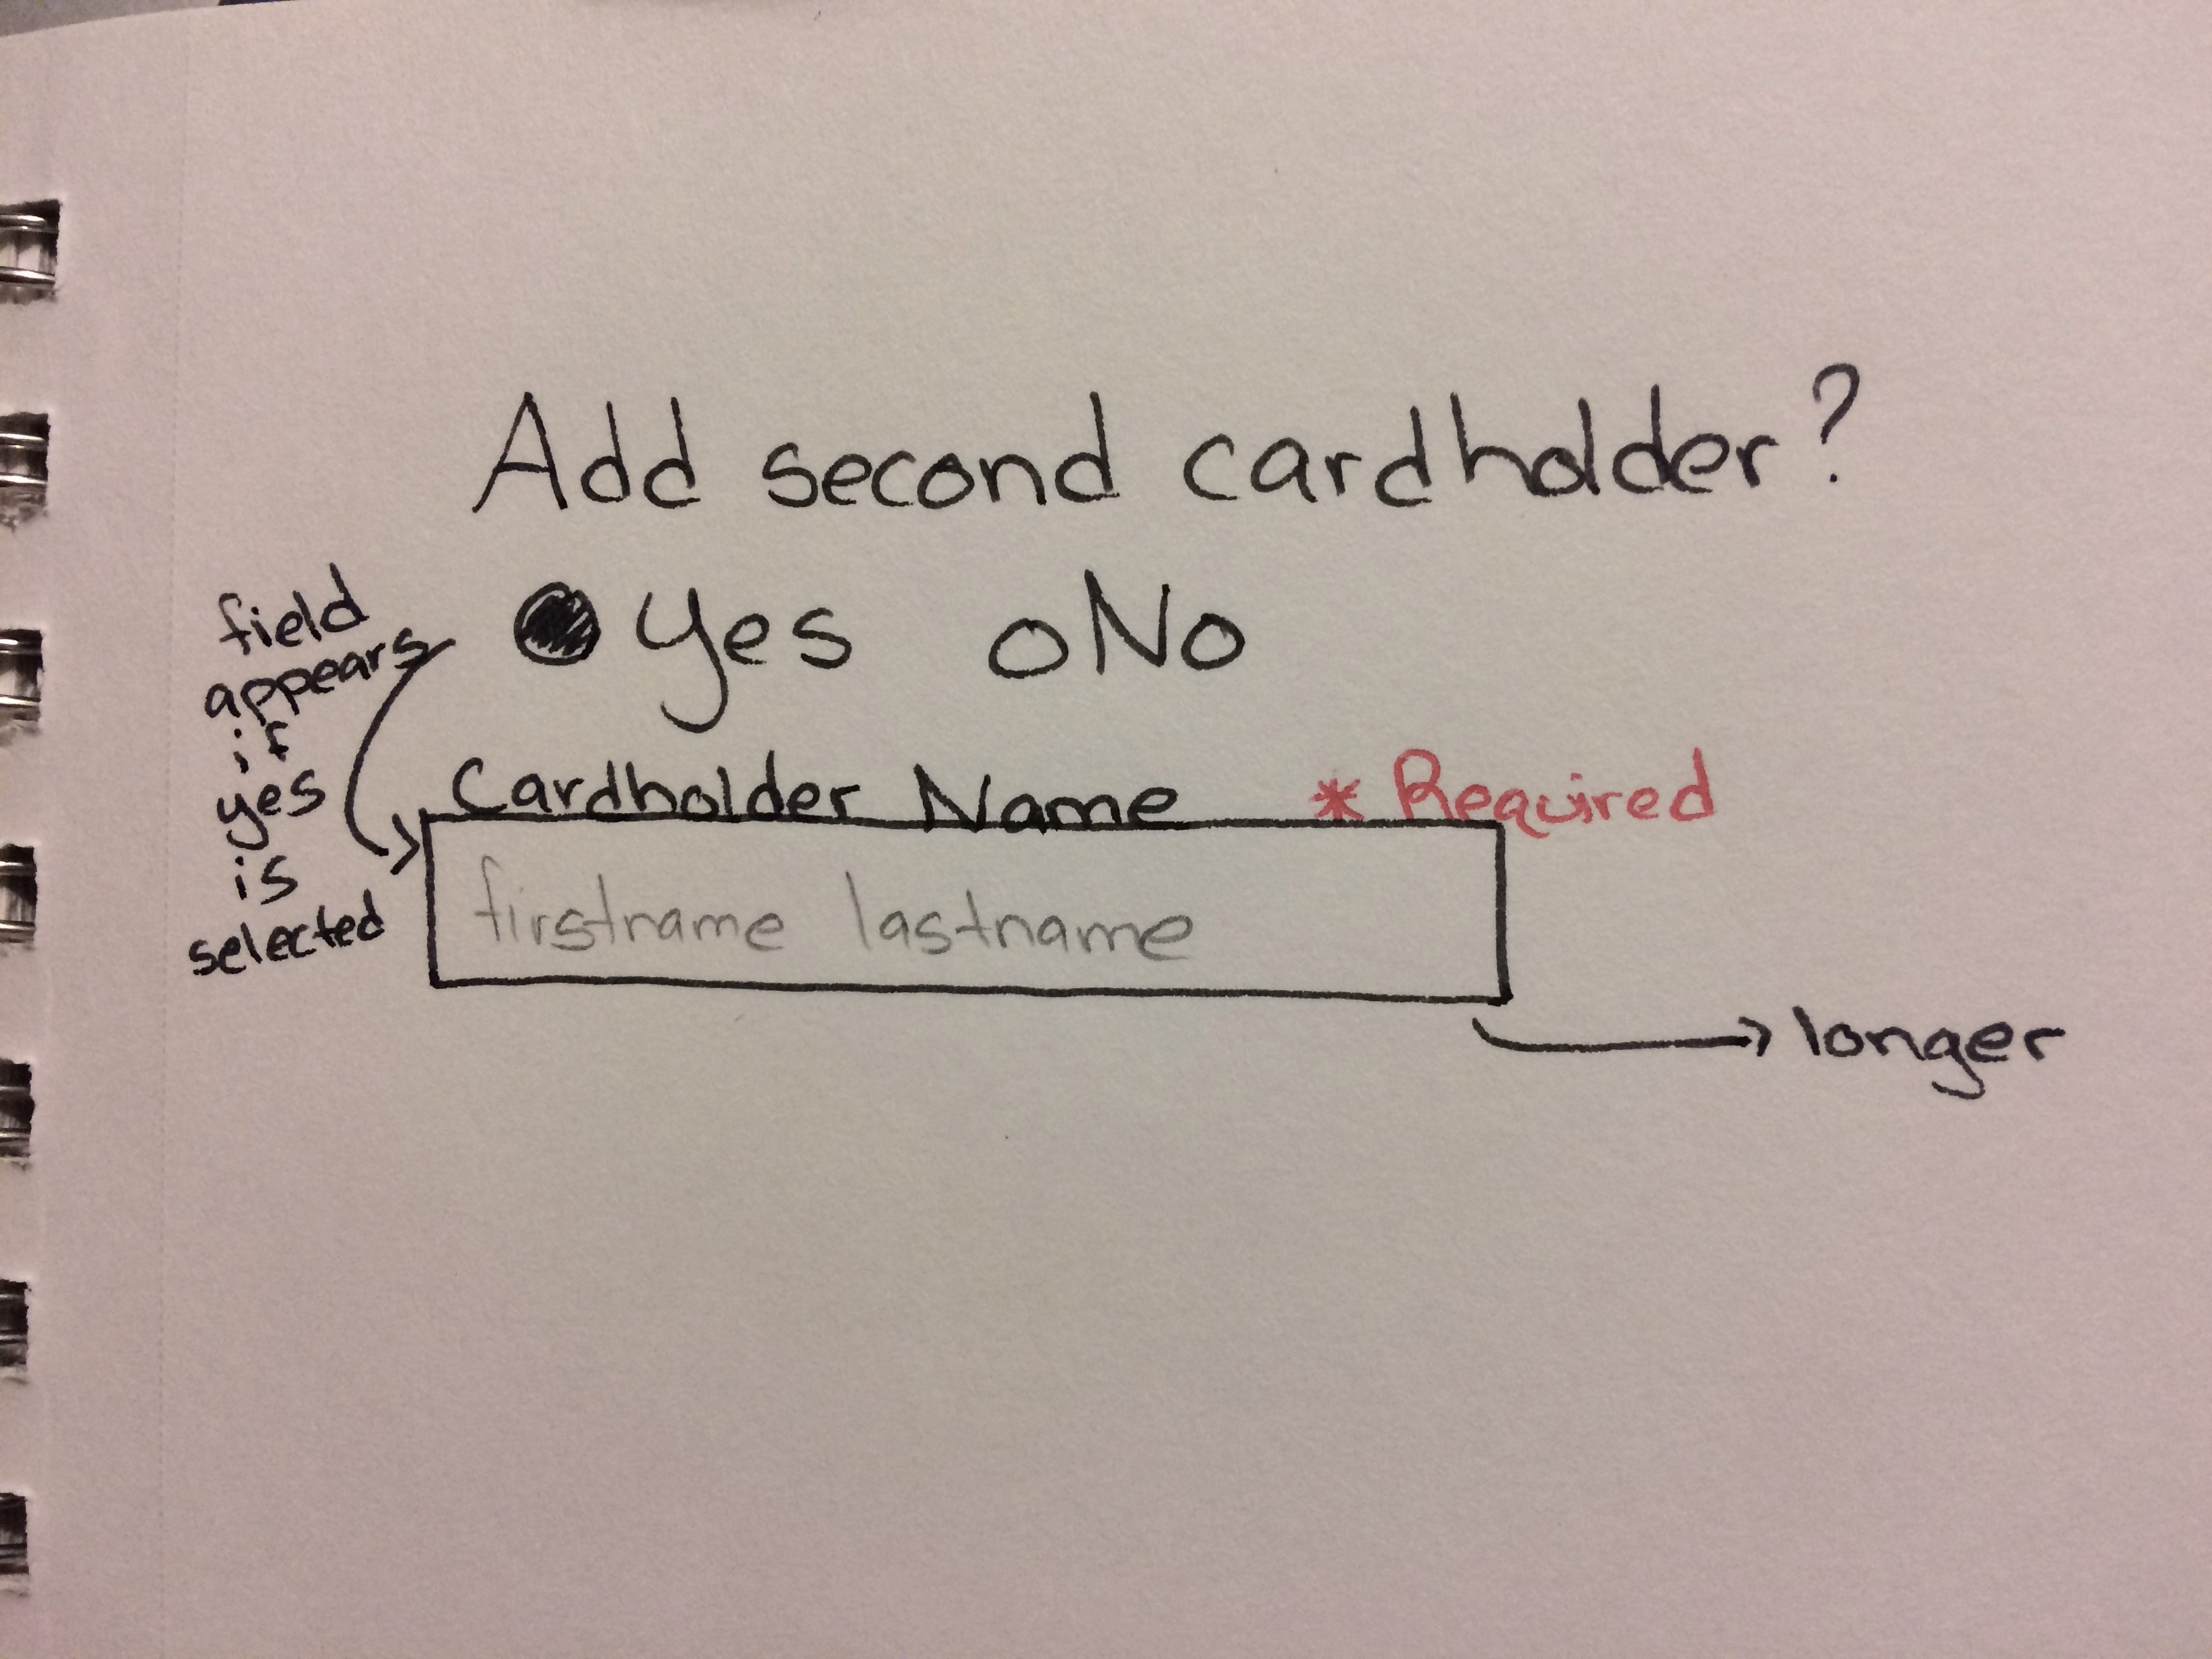 Add second cardholder?
Yes No
field
appears
if
yes
is
selected
Cardholder Name * Required
firstname lastname
longer